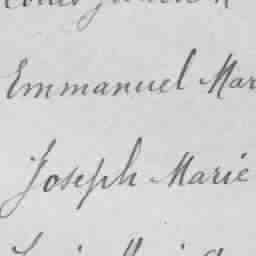 Emmanuel Mar
Joseph Marie